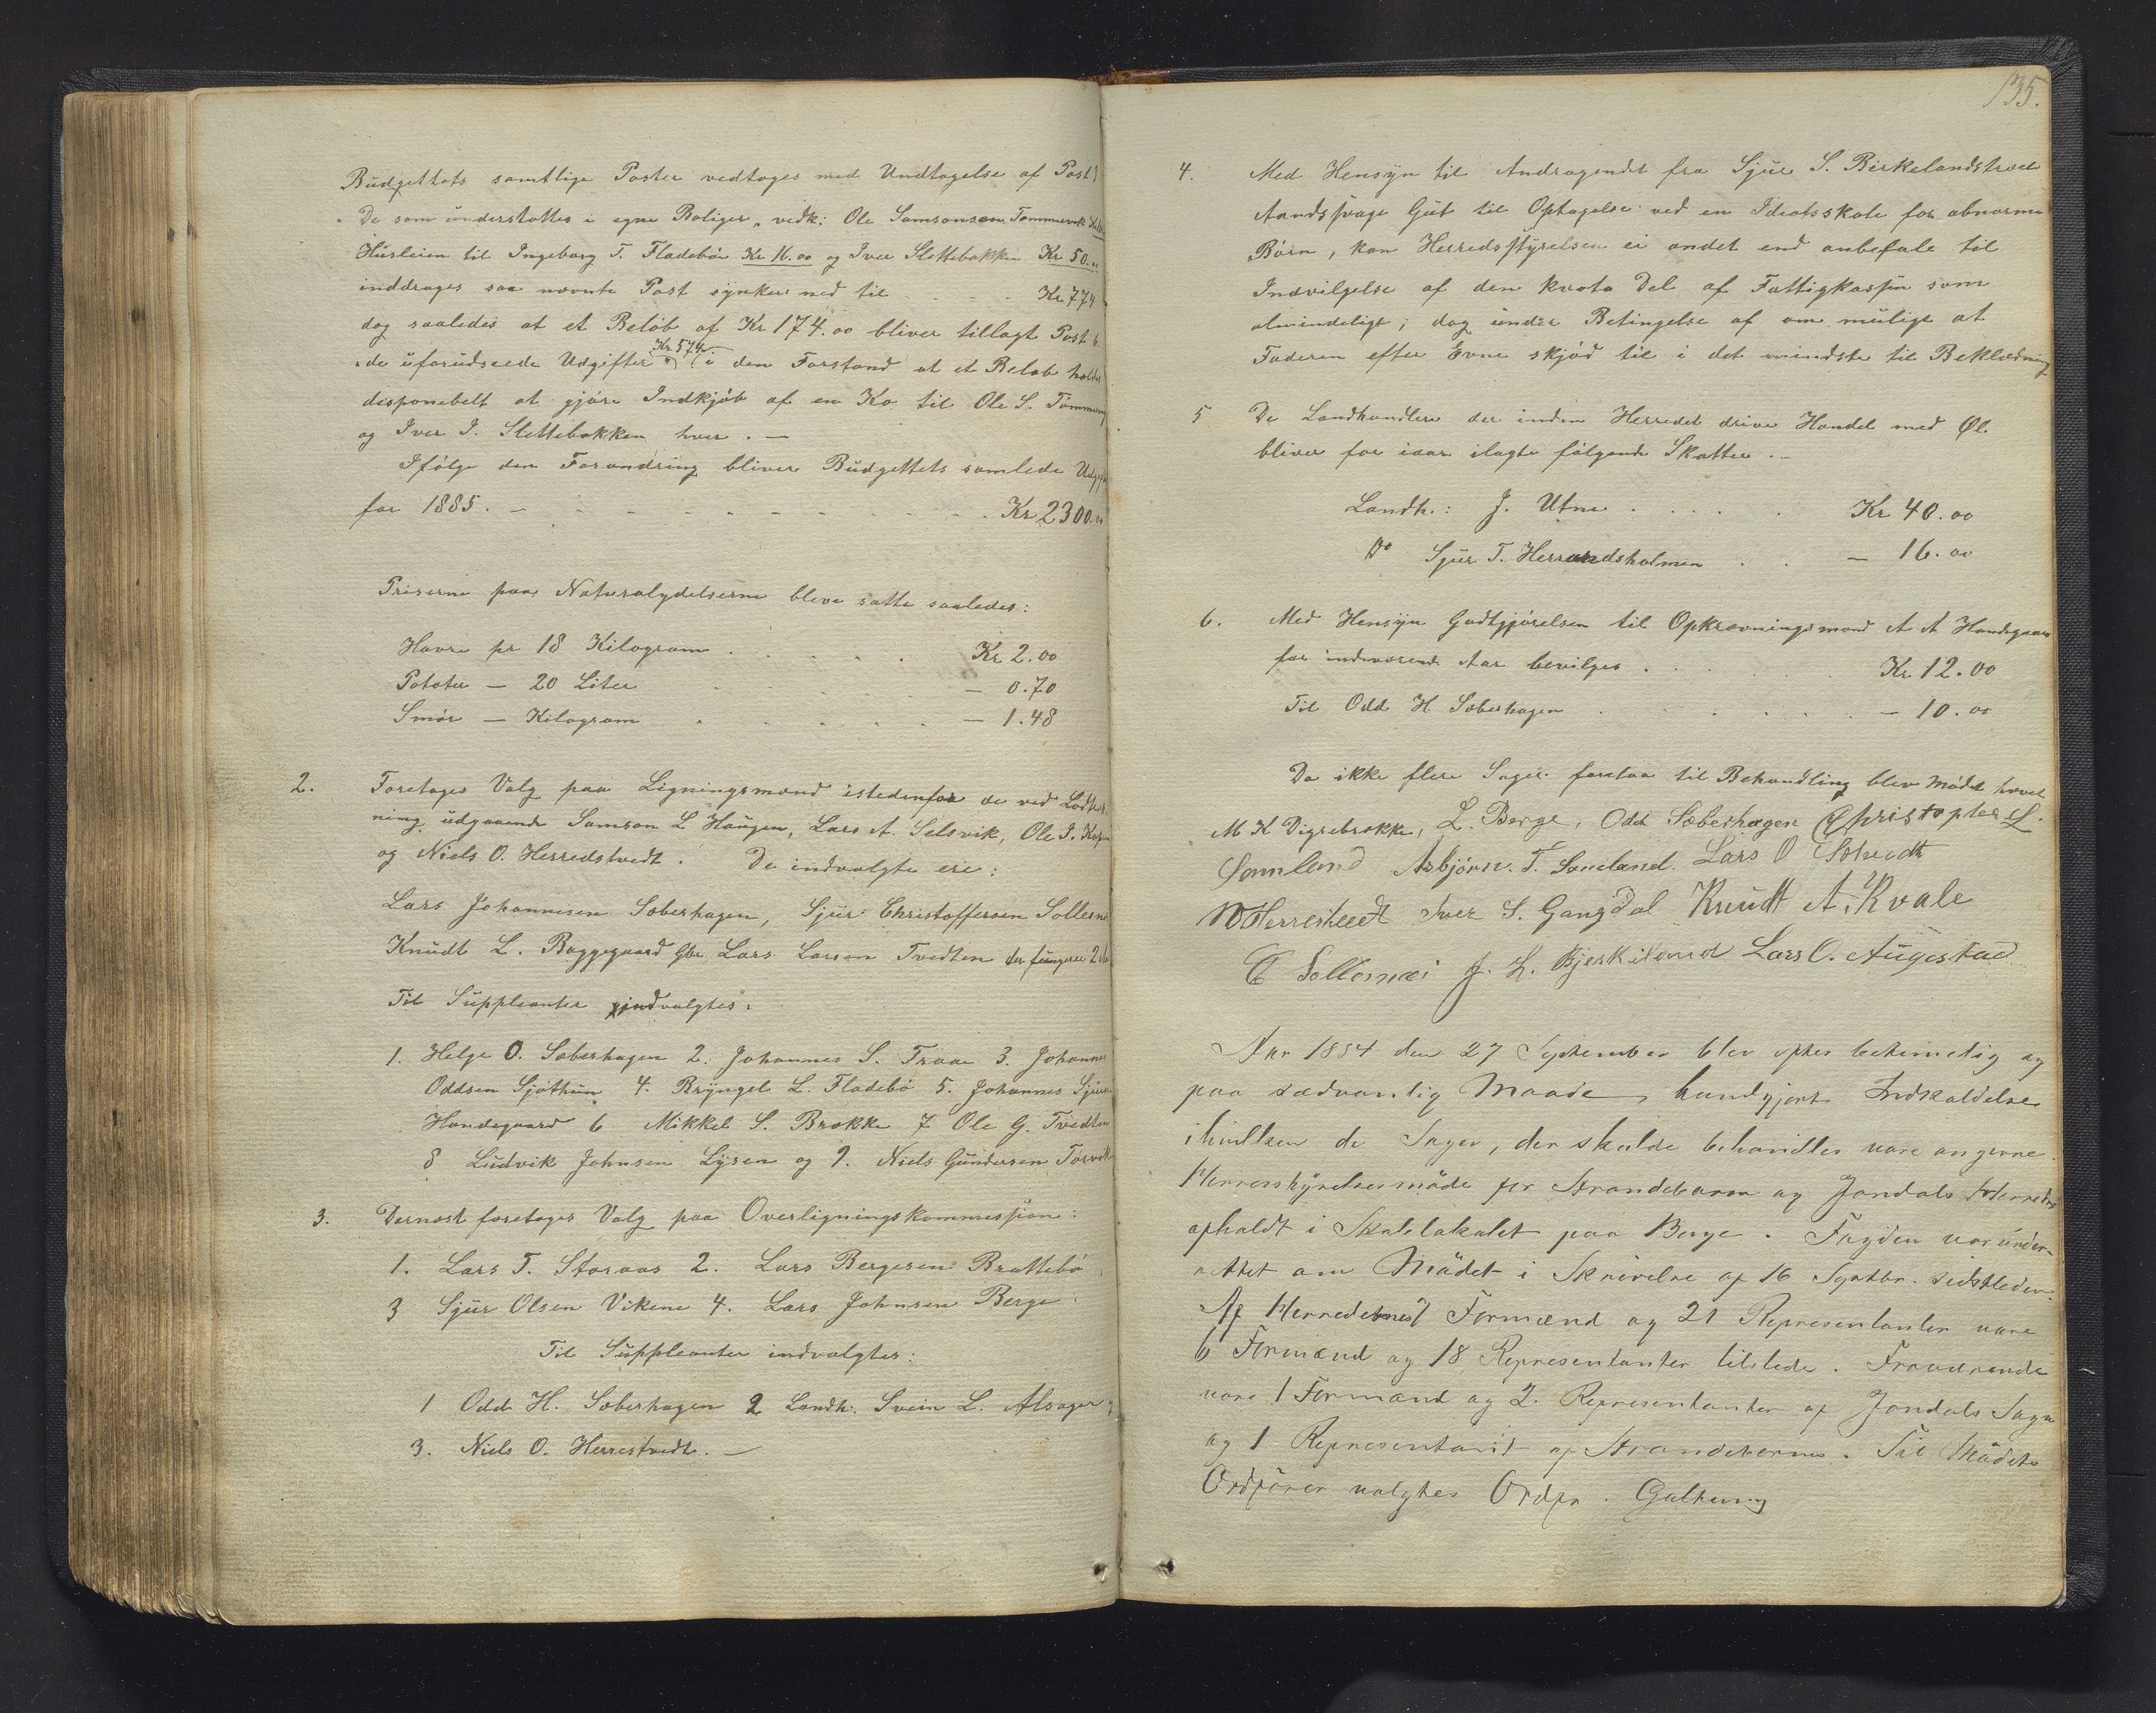 Budgettets samtlige Poster vedtages med Undtagelse af Post
"De som understøttes i egne Boliger" vedk: Ole Samsonsen Tømmervik
Husleien til Ingeborg T. Fladebø Kr 16.00 og Iver Slettebakken Kr 50.
inddrages saa nævnte Post synker ned til - - - Kr 774
dog saaledes at et Beløb af Kr 174.00 bliver tillagt Post 6
"de uforudseede Udgifter" Kr 574 i den Forstand at et Beløb holdes
disponibelt at gjøre Indkjøb af en Ko til Ole S. Tømmerv
og Iver I. Slettebakken hver. -
Ifølge den Forandring bliver Budgettets samlede Udgift
for 1885. - - - - - - - - Kr 2300.00
Priserne paa Naturalydelserne bleve satte saaledes:
Havre pr 18 Kilogram . . . . . Kr 2.00
Poteter - 20 Liter . . . . . - 0.70
Smør - Kilogram . . . . . - 1.48
2. Foretages Valg paa Ligningsmænd istedenfor de ved Lodtræk-
ning udgaaende Samson L Haugen, Lars A. Selsvik, Ole I.
og Niels O. Herrestvedt. De indvalgte ere:
Lars Johannesen Soberhagen, Sjur Christoffersen Sollesnes
Knudt L. Baggegaard Gbr Lars Larsen Tvedten der fungerer 2
Til Suppleanter indvalgtes:
1. Helge O. Soberhagen 2. Johannes S. Traae 3. Johannes
Oddsen Sjøthun 4. Brynjel L. Fladebø 5. Johannes Sjur
Handegaard 6 Mikkel S. Brække 7 Ole G. Tvedten
8 Ludvik Johnsen Lysen og 9. Niels Gundersen Tørvik
3. Dernæst foretages Valg paa Overligningskommission:
1. Lars T. Storaas 2. Lars Bergesen Brattebø
3 Sjur Olsen Vikene 4. Lars Johnsen Berge
Til Suppleanter indvalgtes:
1 Odd H. Soberhagen 2 Landh. Svein L. Alsager
3. Niels O. Herrestvedt. -
135.
4. Med Hensyn til Andragendet fra Sjur S. Birkelandstræet
Aandssvage Gut til Optagelse ved en Idiotskole for abnorme
Børn, kan Herredsstyrelsen ei andet end anbefale til
Indvilgelse af den kvota Del af Fattigkassen som
almindeligt; dog under Betingelse af om muligt at
Faderen efter Evne skjød til i det mindste til Beklædning
5 De Landhandlere der inden Herredet drive Handel med Øl
bliver for iaar ilagte følgende Skatter. -
Landh.: J. Utne . . . . Kr 40.00
Do Sjur T. Herrandsholmen . . - 16.00
6. Med Hensyn Godtgjørelsen til Opkrævningsmænd A A Handegaard
for indeværende Aar bevilges . . . . Kr 12.00
Til Odd H Soberhagen . . . . . - 10.00
Da ikke flere Sager foretaa til Behandling blev Mødet hævet
M K Digrebrække, L. Berge, Odd Soberhagen Christopher L.
Sannland Asbjørn. T. Soneland. Lars O
N Herrestvedt Iver S. Gangdal Knudt A. Kvale
C Sollesnæs J. L. Bjerkeland Lars O. Augestad
Aar 1884 den 27 September blev efter betimelig og
paa sædvanlig Maade kundgjort Indkaldelse
i hvilken de Sager, der skulde behandles vare angivne
Herredsstyrelsesmøde for Strandebarm og Jondals Herreder
afholdt i Skolelokalet paa Berge. Fogden var under-
rettet om Mødet i Skrivelse af 16 Septbr. sidstleden.
Af Herredernes 7 Formænd og 21 Repræsentanter vare
6 Formænd og 18 Repræsentanter tilstede. Fraværende
vare 1 Formand og 2 Repræsentanter af Jondals Sogn
og 1 Repræsentant af Strandebarms. Til Mødets
Ordfører valgtes Ordfr. Galtung